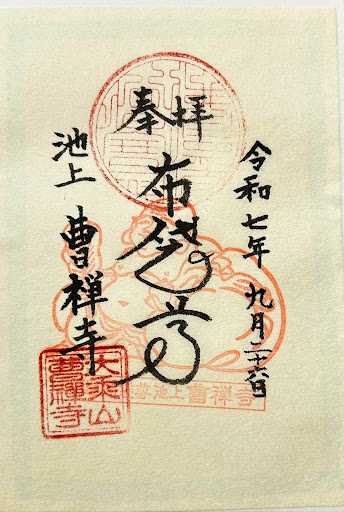 令和七年 九月二十六日
奉拝
布袋尊
池上 曹禅寺
大乘山
曹禪寺
池上曹禅寺